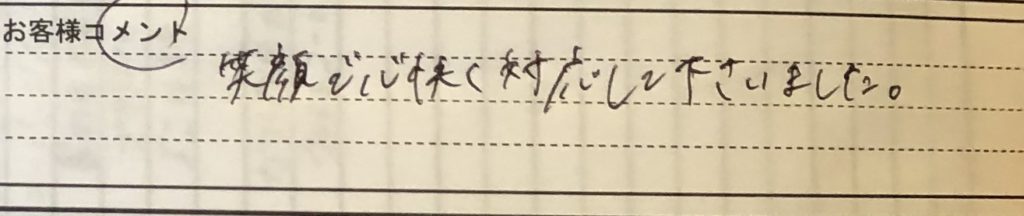 お客様コメント
笑顔で心快く対応して下さいました。